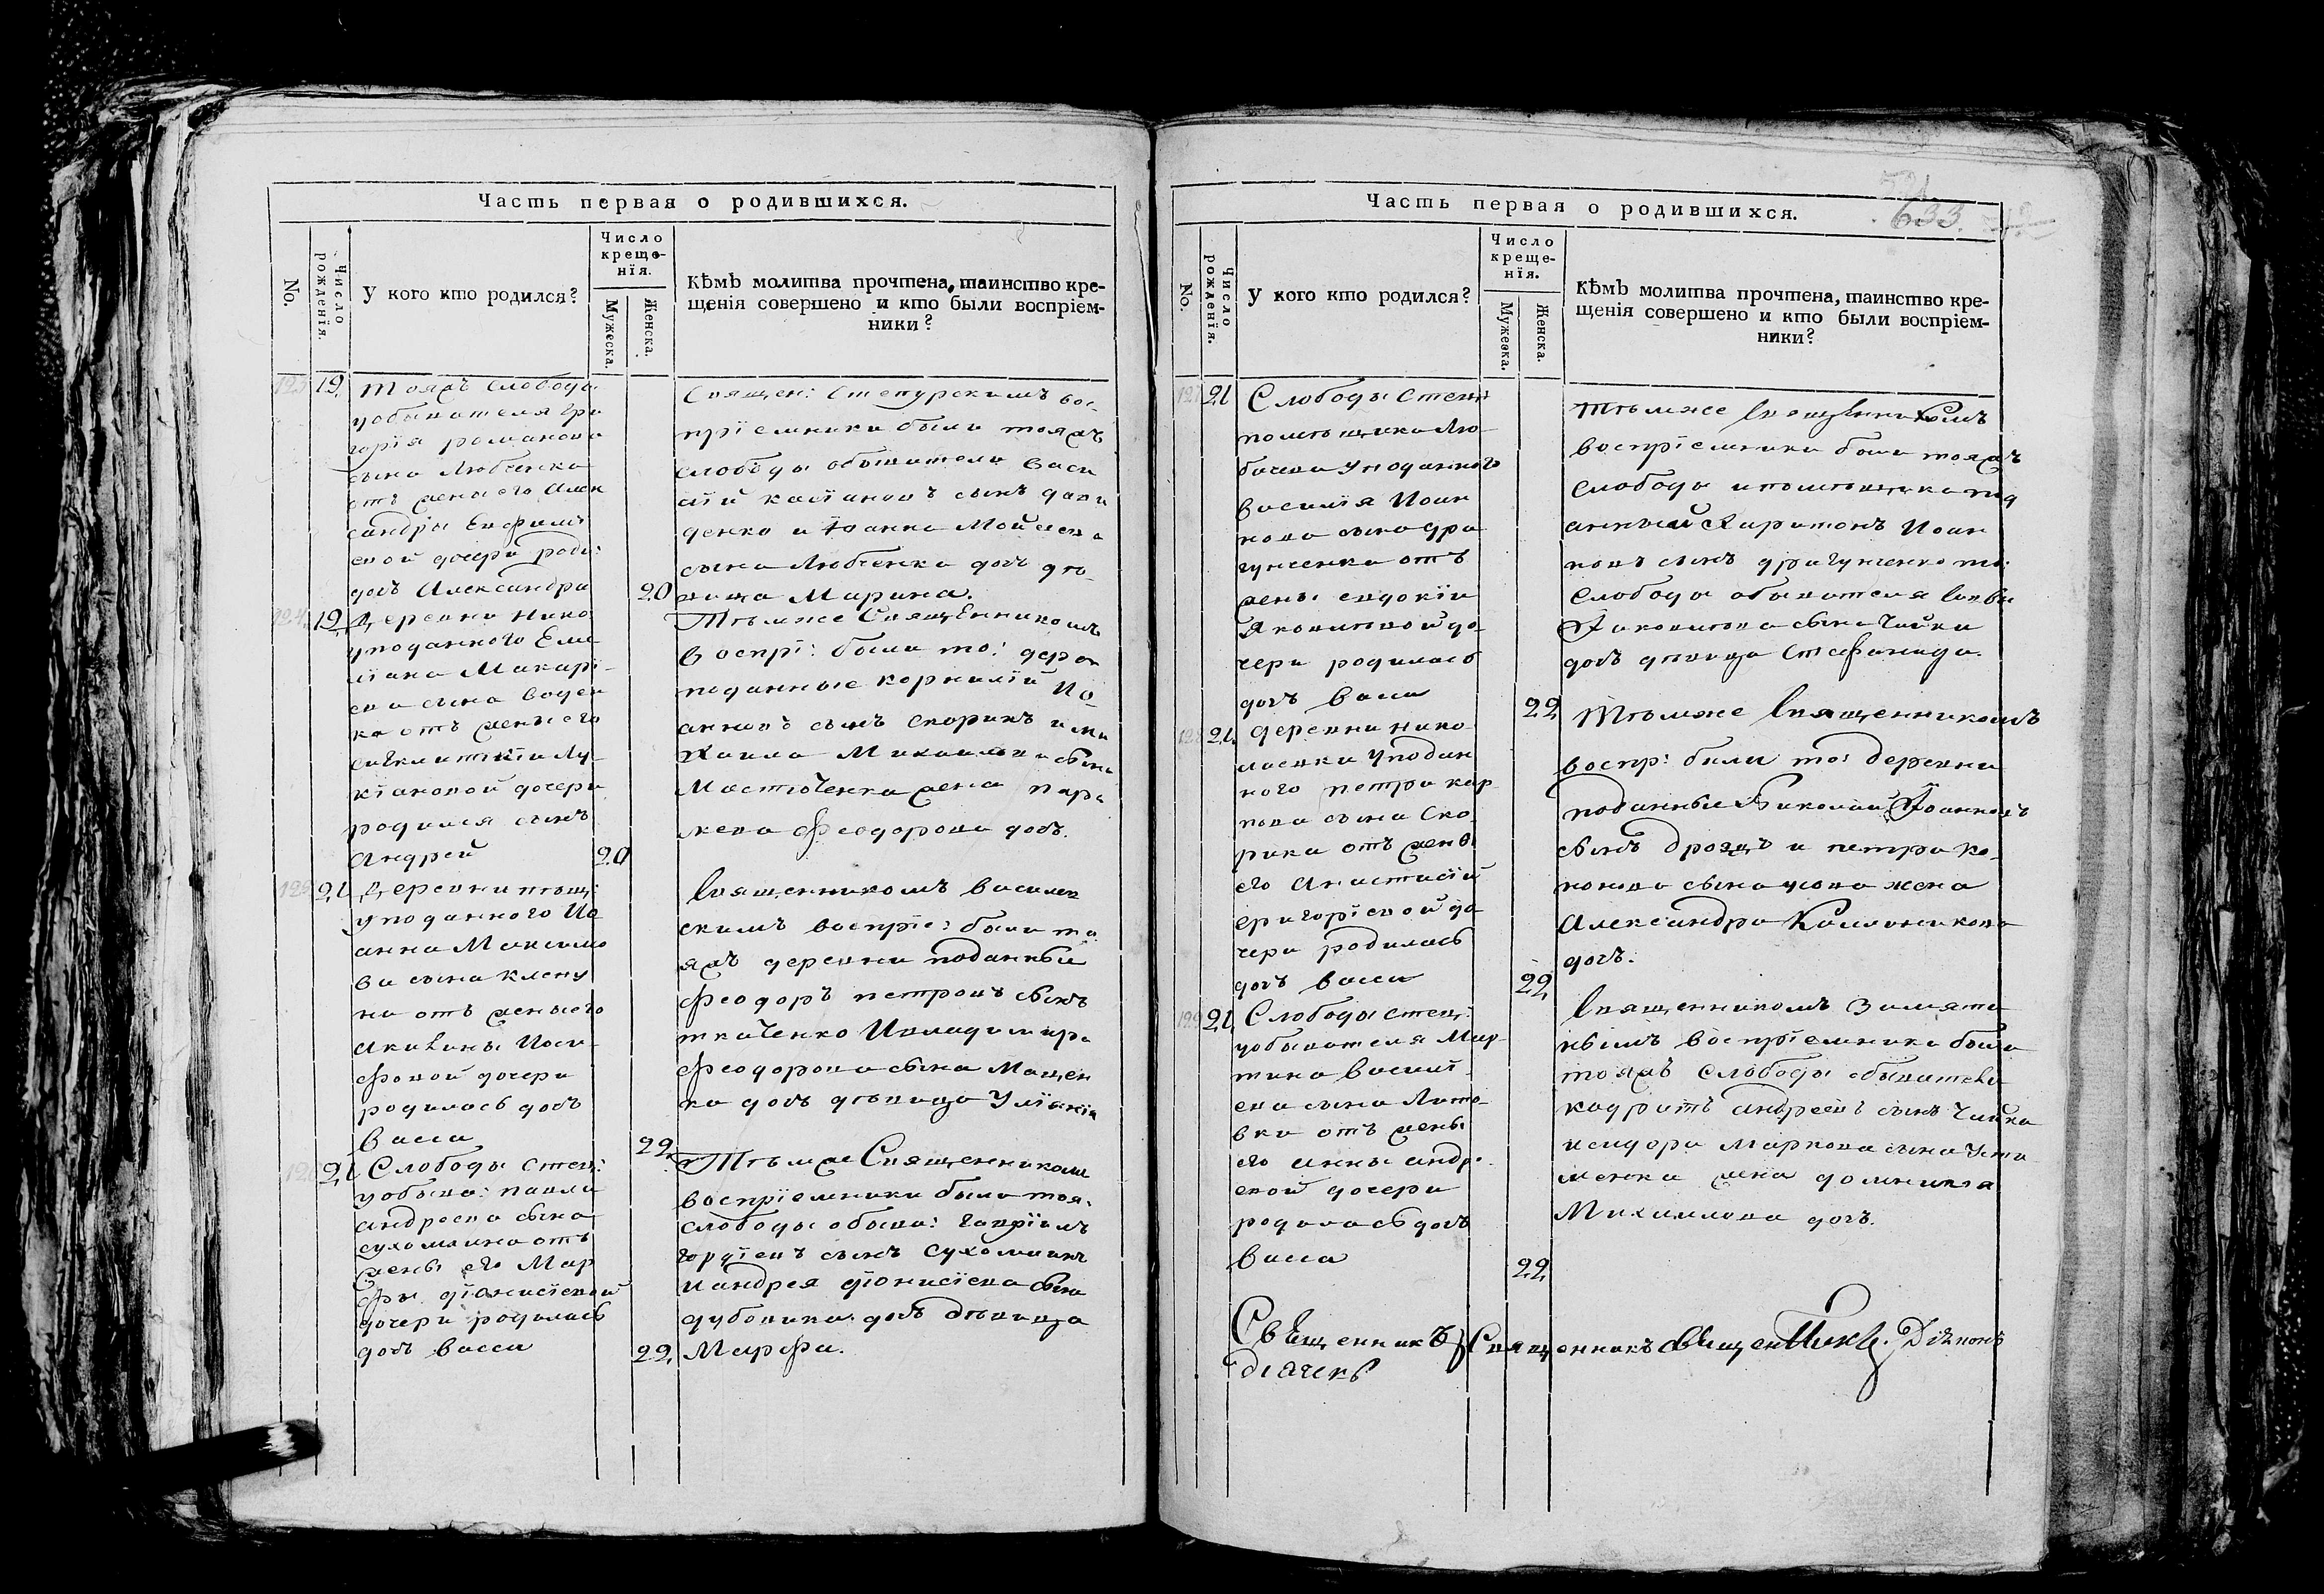 Часть первая о родившихся.
No.
Число рожденїя.
У кого кто родился?
Число крещенїя.
Мужеска.
Женска.
Кѣмъ молитва прочтена, таинство кре-
щенія совершено и кто были воспріем-
ники?
19
тояжъ слободы
уобывателя Гри
горія романова
сына Любченка
отъ жены его Алек
сандры Евфимї
евой дочери роди:
дочь Александра
20
Священ: Стецурскимъ вос-
прїемники были тояжъ
слободы обыватели Васи
лїй касїановъ сынъ дави
денко и Іоанна Мойсеева
сына Любченка дочь дѣ-
вица Марина.
19
Деревни Нико
уподанного Еме
лїана Макарї-
ева сына
ка отъ жены его
Лу-
кїановой дочери
родился сынъ
Андрей
20
Тѣмже Священникомъ
воспрї: были то: дерев
поданные корнилїй Іо-
анновъ сынъ Скорикъ и Ми
хаила Михаилова сына
жена пара
скева Феодорова дочь.
21
Деревни
уподанного Іо
анна Максимо
ва сына
на отъ жены его
Акилины Іоси-
фовой дочери
родилась дочь
Васса
22
Священникомъ Василев
скимъ воспрїе: были то
яжъ деревни поданные
Феодоръ петровъ сынъ
ткаченко Ивладимира
Феодорова сына Мацен
ка дочь дѣвица Улїанїа
21
Слободы Стец:
уобыва: павла
андреева сына
сухомлина отъ
жены его Мар
фы дїонисїевой
дочери родилась
дочь Васса
22
Тѣмже Священникомъ
воспрїемники были тоя:
слободы обыва: Гаврїилъ
гордїевъ сынъ Сухомлинъ
Иандрея дїонисїева сына
дубовика дочь дѣвица
Марфа.
Часть первая о родившихся.
633.
No.
Число рожденїя.
У кого кто родился?
Число крещенїя.
Мужеска.
Женска.
Кѣмъ молитва прочтена, таинство кре-
щенія совершено и кто были воспріем-
ники?
21
Слободы Стец:
помѣщика Лю-
уподанного
василїя Иоан
нова сына дра
гунченка отъ
жены евдокїи
Яковлевой до-
чери родилась
дочь Васса
22
Тѣмже Священникомъ
воспрїемники были тояжъ
слободы ипомѣщика под
анный Харитонъ Иоан
новъ сынъ драгунченко то:
Слободы обывателя Саввы
Іаковлева сына Чайки
дочь дѣвица Стефанида.
21
деревни нико-
лаевки уподан
ного петра кар
пова сына Ско
рика отъ жены
его Анастасїи
григорїевой до
чери родилась
дочь Васса
22
Тѣмже Священникомъ
воспр: были то: деревни
поданные Николай Іоанновъ
сынъ Дроздъ и петра Ко-
нонова сына жена
Александра Каллиникова
дочь.
21
Слободы стец:
уобывателя Мар-
тина Василї-
ева сына Лито-
вки отъ жены
его анны андр:
евой дочери
родилась дочь
Васса
22
Священникомъ Замята
нымъ воспрїемники были
тояжъ слободы обыватели
кодратъ андреевъ сынъ Чайка
исидора Маркова сына Усти
менка жена домникїя
Михаилова дочь.
Священникъ Священникъ Священникъ Дїаконъ
дїачекъ